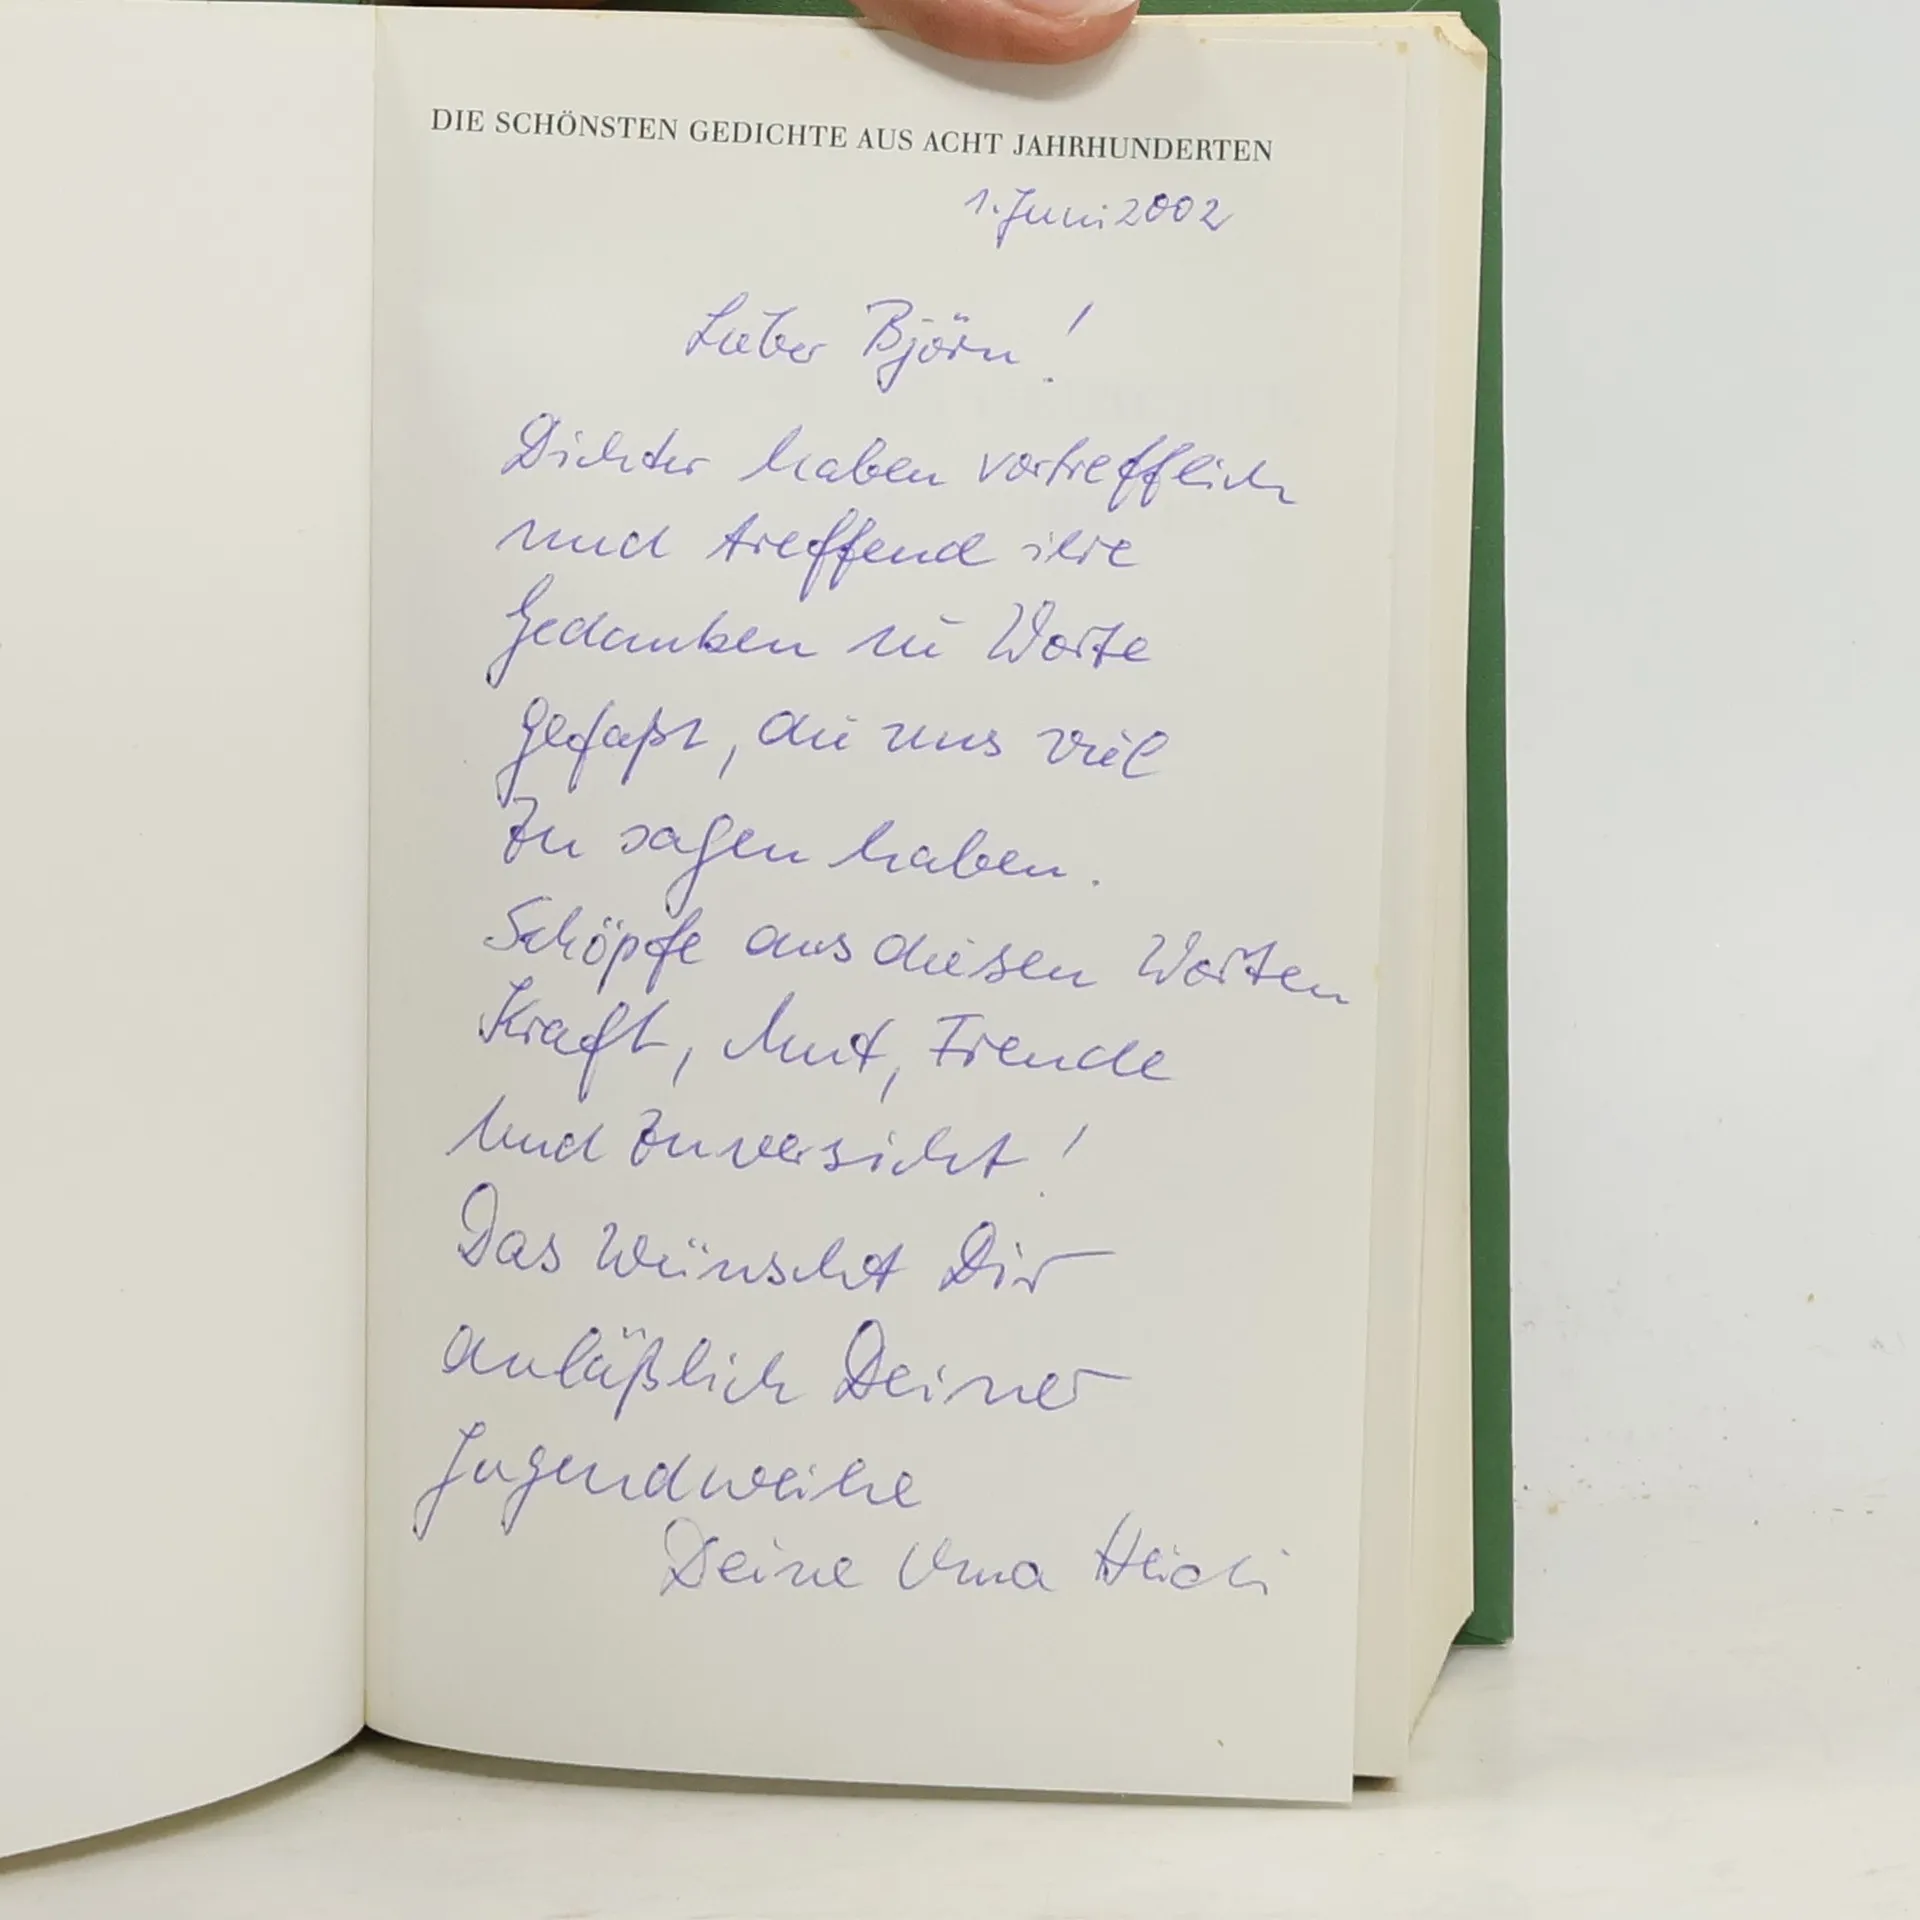 DIE SCHÖNSTEN GEDICHTE AUS ACHT JAHRHUNDERTEN
1. Juni 2002
Lieber Björn!
Dichter haben vortrefflich
und treffend ihre
Gedanken in Worte
gefaßt, die uns viel
zu sagen haben.
Schöpfe aus diesen Worten
Kraft, Mut, Freude
und Zuversicht!
Das wünscht Dir
anläßlich Deiner
Jugendweihe
Deine Oma Heidi